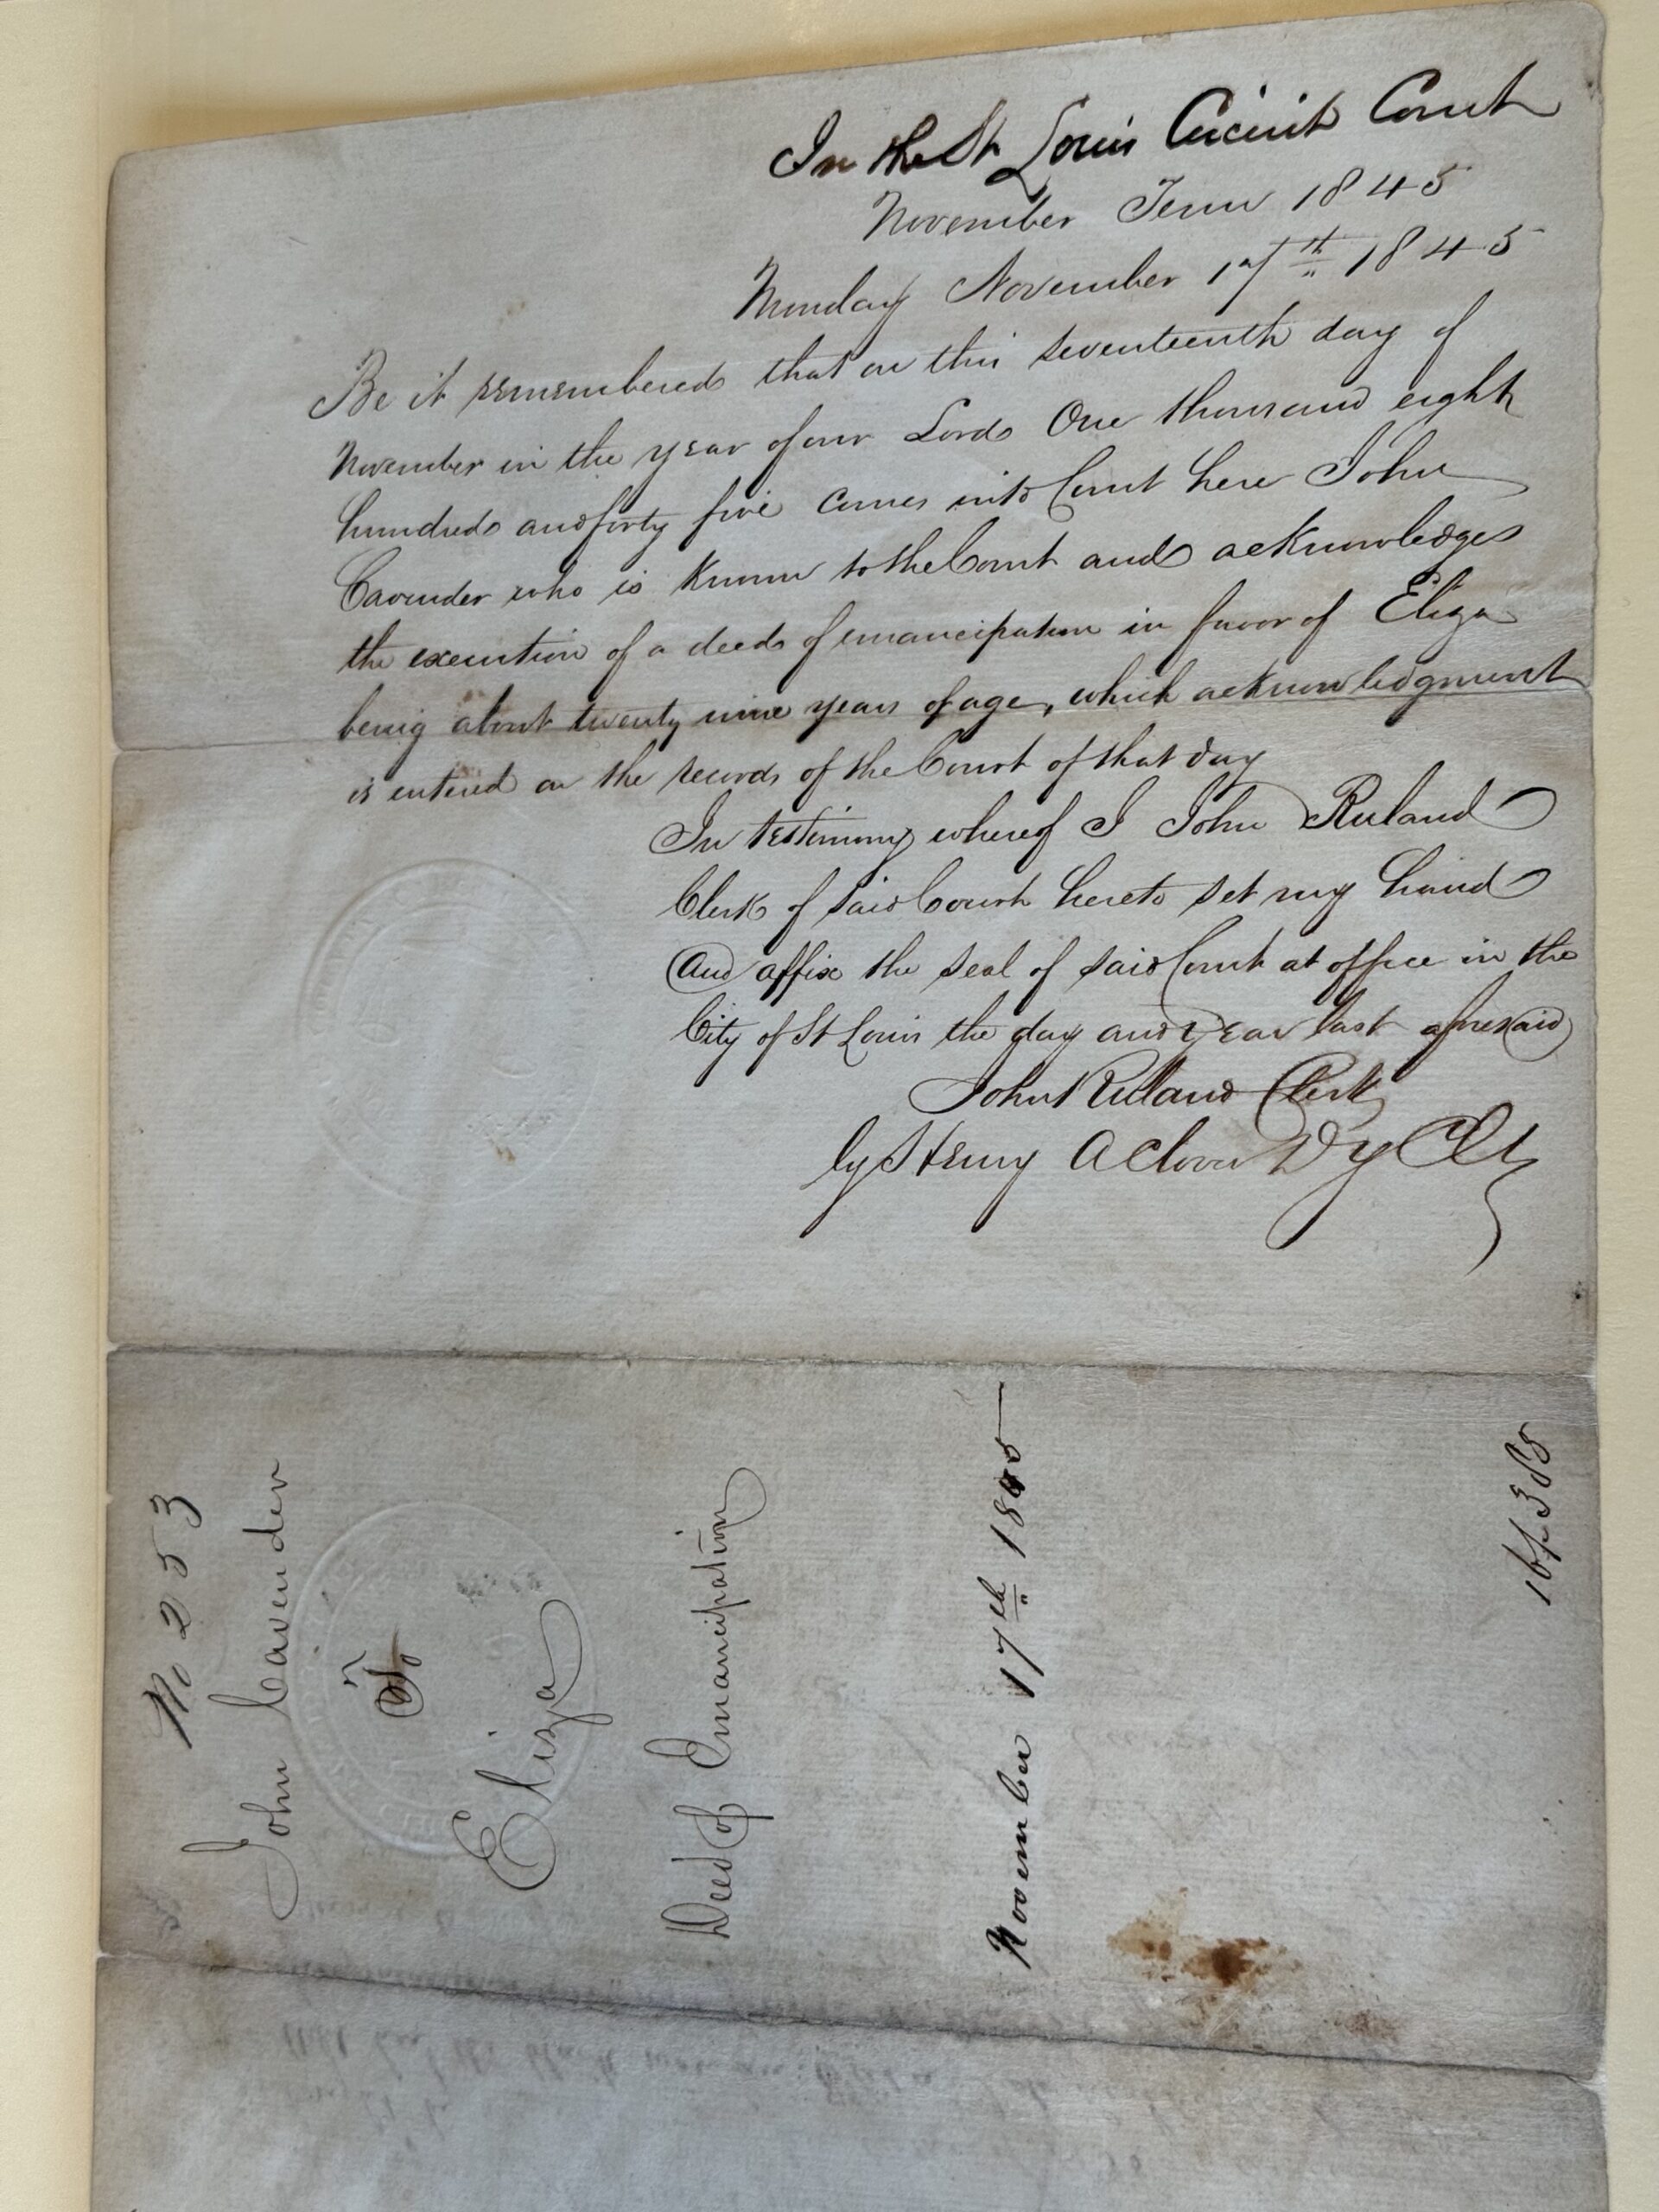 In the St Louis Circuit Court
November Term 1845
Monday November 17th 1845
Be it remembered that on this seventeenth day of
November in the year of our Lord One thousand eight
hundred and forty five comes into Court here John
Cavender who is known to the Court and acknowledges
the execution of a deed of emancipation in favor of Eliza
being about twenty nine years of age, which acknowledgment
is entered on the records of the Court of that day
In testimony whereof I John Ruland
Clerk of said Court hereto set my hand
And affix the seal of said Court at office in the
City of St Louis the day and year last aforesaid
John Ruland Clerk
by Henry A Clover Dy Clk
No 253
John Cavender
To
Eliza
Deed of Emancipation
November 17th 1845